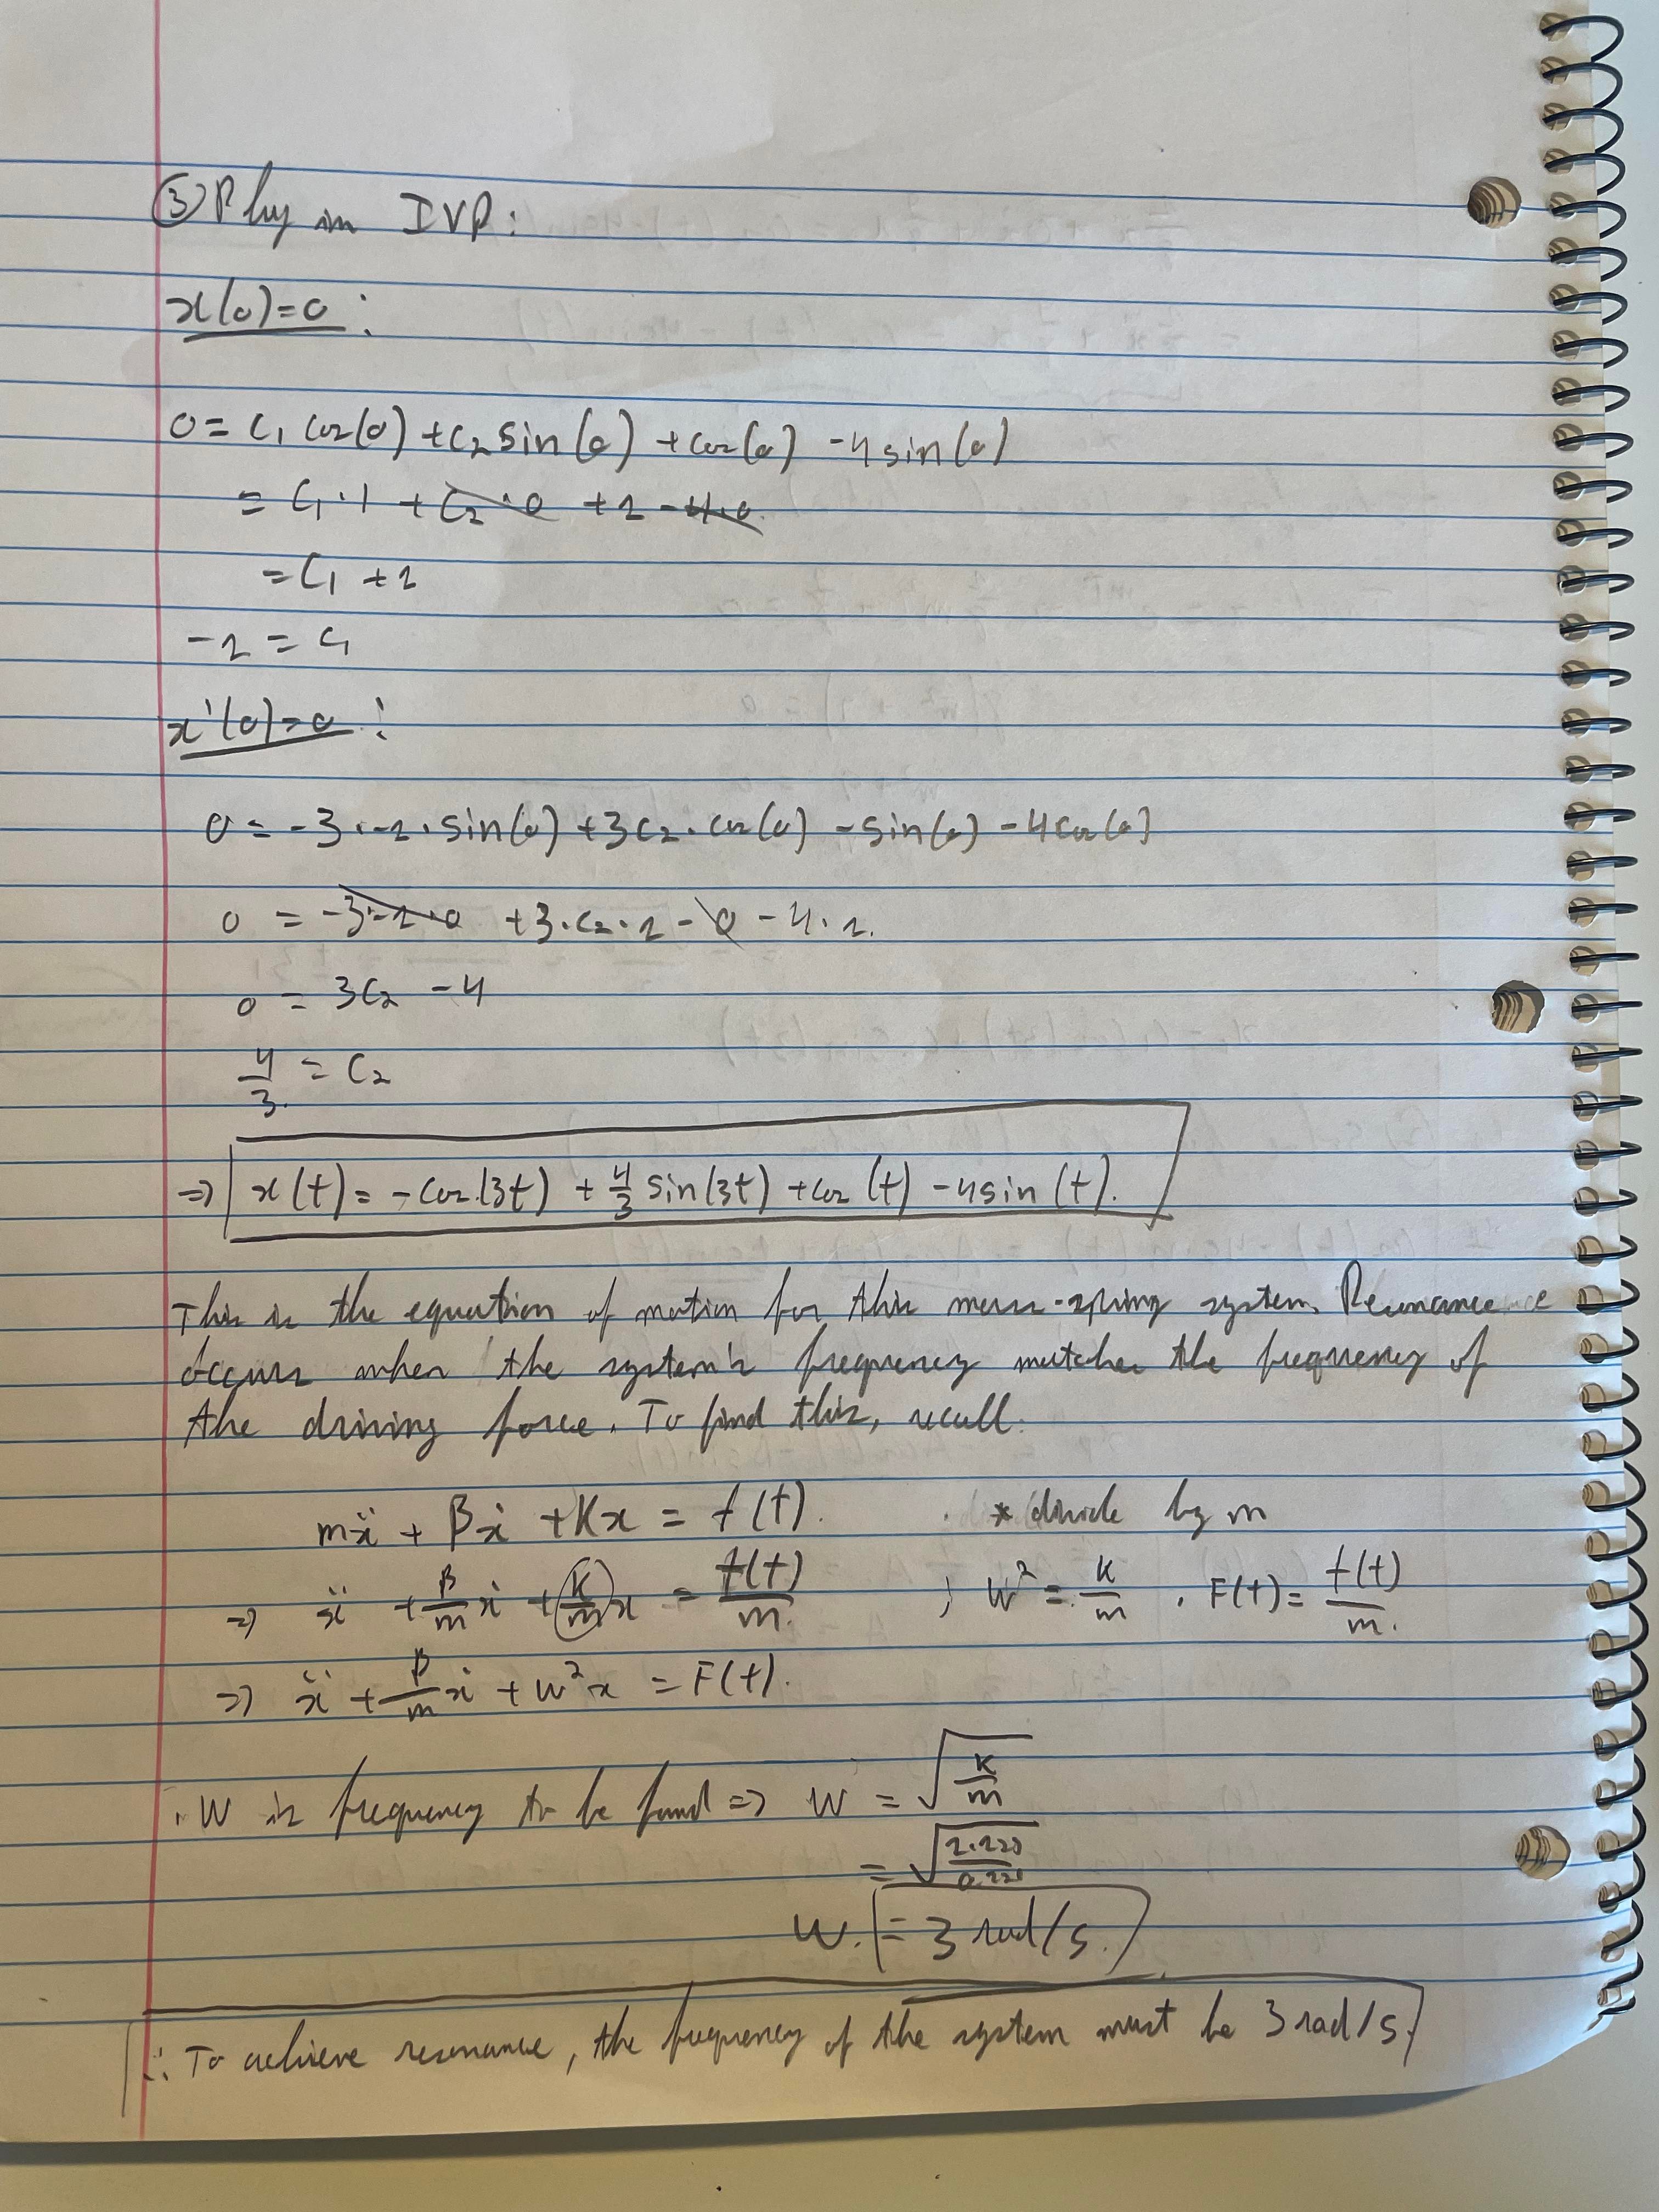 ③ Plug in IVP:
x(0)=0:
0 = C₁ cos(0) + C₂ sin(0) + cos(0) - 4 sin(0)
= C₁·1 + C₂·0 + 1 - 4·0.
= C₁ + 1
-1 = C₁
x'(0)=0:
0 = -3·-1·sin(0) + 3C₂·cos(0) - sin(0) - 4cos(0)
0 = -3·-1·0 + 3·C₂·1 - 0 - 4·1.
0 = 3C₂ - 4
4/3 = C₂
⇒ x(t) = -cos(3t) + 4/3 sin(3t) + cos(t) - 4sin(t).
This is the equation of motion for this mass-spring system. Resonance
occurs when the system's frequency matches the frequency of
the driving force. To find this, recall:
mẍ + βẋ + Kx = f(t). * divide by m
⇒ ẍ + β/m ẋ + K/m x = f(t)/m. ; W² = K/m . F(t) = f(t)/m.
⇒ ẍ + β/m ẋ + W²x = F(t).
∴ W is frequency to be found ⇒ W = √(K/m)
= √(1.125/0.125)
W = 3 rad/s.
∴ To achieve resonance, the frequency of the system must be 3 rad/s.